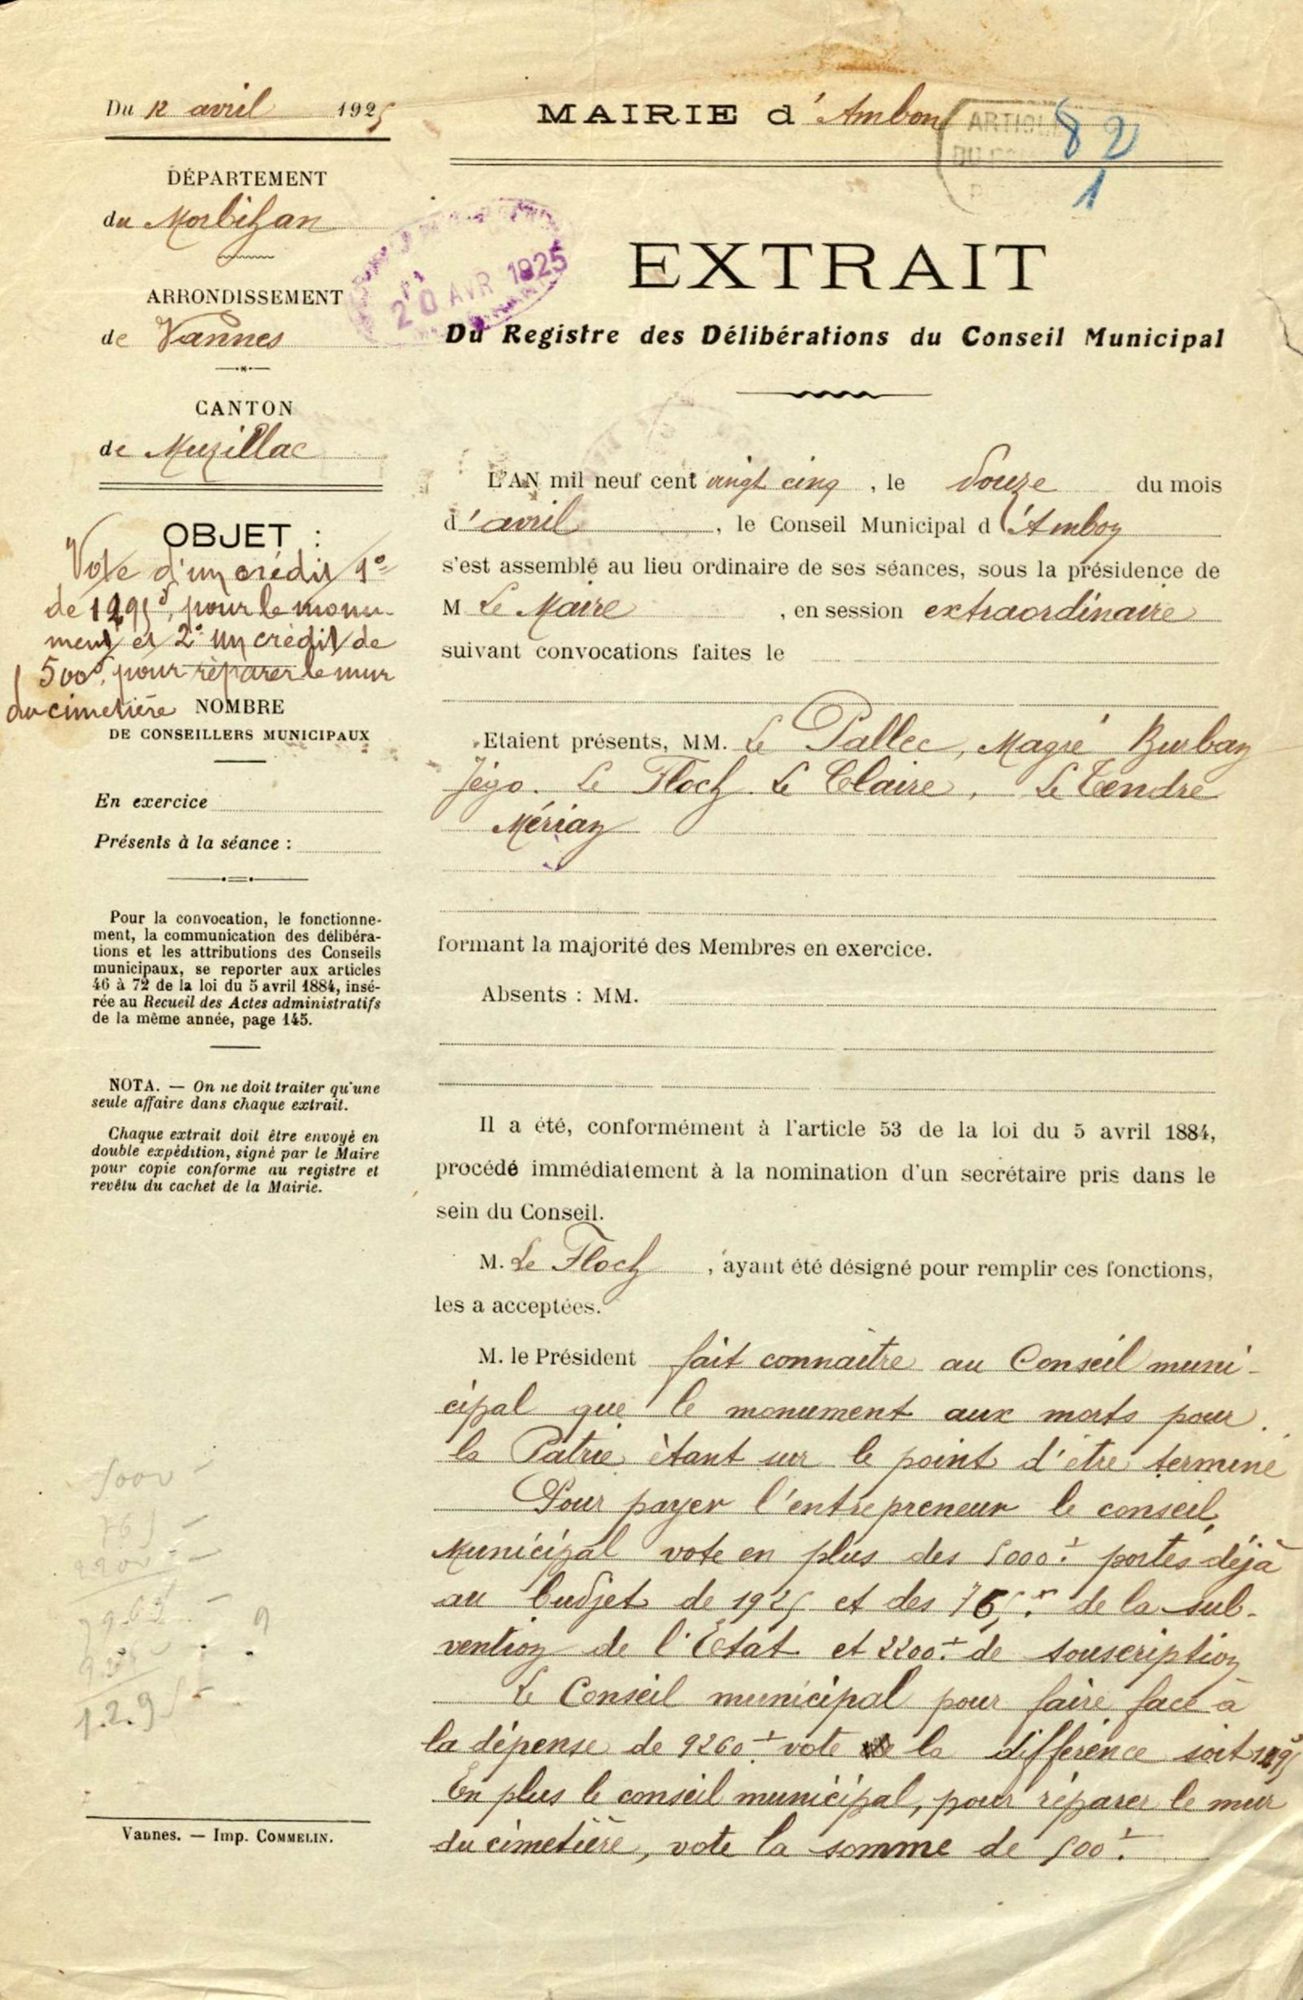 Du 12 avril 1925
MAIRIE d'Ambon
ARTICLE
82
1
DÉPARTEMENT
du Morbihan
ARRONDISSEMENT
de Vannes
CANTON
de Muzillac
20 AVR 1925
EXTRAIT
Du Registre des Délibérations du Conseil Municipal
OBJET :
Vote d'un crédit 1°
de 1295f, pour le monu-
ment et 2° un crédit de
500f, pour réparer le mur
du cimetière
NOMBRE
DE CONSEILLERS MUNICIPAUX
En exercice
Présents à la séance :
Pour la convocation, le fonctionne-
ment, la communication des délibéra-
tions et les attributions des Conseils
municipaux, se reporter aux articles
46 à 72 de la loi du 5 avril 1884, insé-
rée au Recueil des Actes administratifs
de la même année, page 145.
NOTA. — On ne doit traiter qu'une
seule affaire dans chaque extrait.
Chaque extrait doit être envoyé en
double expédition, signé par le Maire
pour copie conforme au registre et
revêtu du cachet de la Mairie.
5000
765
2200
7965
1.295
Vannes. — Imp. COMMELIN.
L'AN mil neuf cent vingt cinq, le Douze du mois
d'avril, le Conseil Municipal d'Ambon
s'est assemblé au lieu ordinaire de ses séances, sous la présidence de
M Le Maire, en session extraordinaire
suivant convocations faites le
Etaient présents, MM. Le Pallec, Magré Burban
Jégo. Le Floch. Le Claire, Le Tendre
Mérian
formant la majorité des Membres en exercice.
Absents : MM.
Il a été, conformément à l'article 53 de la loi du 5 avril 1884,
procédé immédiatement à la nomination d'un secrétaire pris dans le
sein du Conseil.
M. Le Floch, ayant été désigné pour remplir ces fonctions,
les a acceptées.
M. le Président fait connaître au Conseil muni-
cipal que le monument aux morts pour
la Patrie étant sur le point d'être terminé
Pour payer l'entrepreneur le conseil
Municipal vote en plus des 5000f. portés déjà
au budget de 1925 et des 765f. de la sub-
vention de l'Etat et 2200f. de souscription
Le Conseil municipal pour faire face à
la dépense de 9260f. vote la différence soit 1295f
En plus le conseil municipal, pour réparer le mur
du cimetière, vote la somme de 500f.